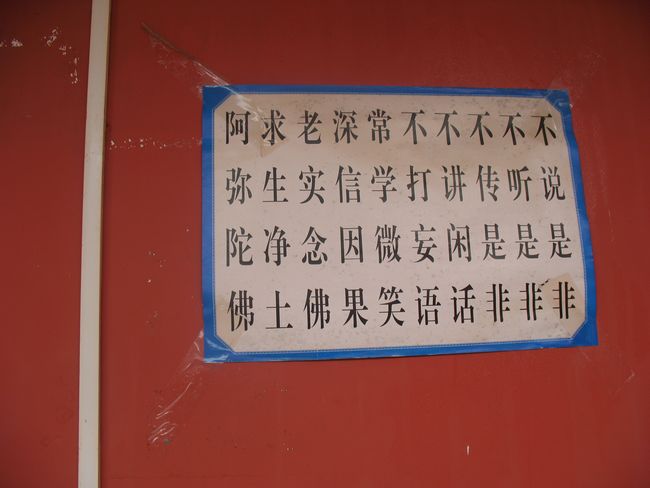 不说是非
不听是非
不传是非
不讲闲话
不打妄语
常学微笑
深信因果
老实念佛
求生净土
阿弥陀佛